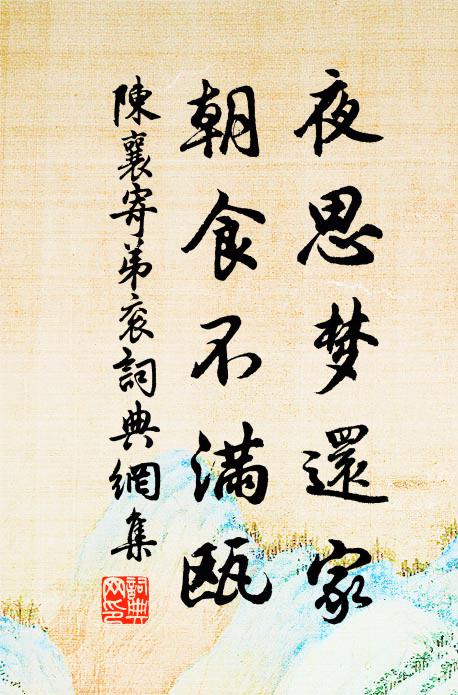 夜思梦還家
朝食不滿甌
陳襄寄弟衮詞典網集
詞典网印